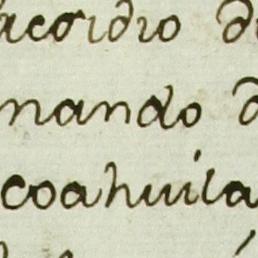 acoridio d
nando d
coahuila